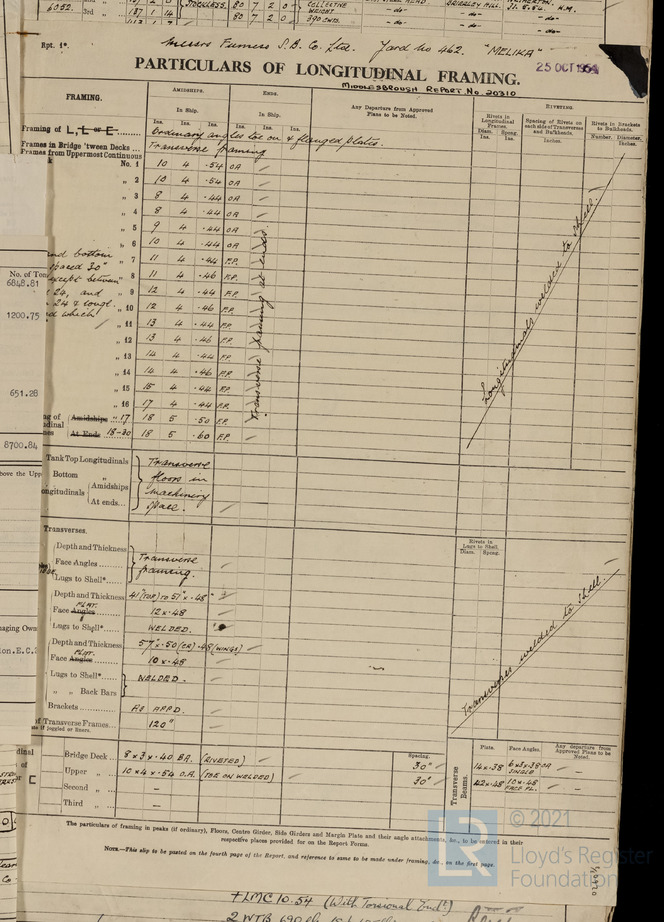 6052. 3rd 187 1 14 STOCKLESS. 80 7 2 0 COLLECTIVE WEIGHT -do- BRIERLEY HILL. 11.5.54. H.M.
80 7 2 0 390 CWTS. -do- -do-
Rpt. 1*. Messrs Furness S.B. Co. Ltd. Yard No 462. "MELIKA"
PARTICULARS OF LONGITUDINAL FRAMING. 25 OCT 1954
MIDDLESBROUGH REPORT No. 20310
FRAMING. AMIDSHIPS. ENDS. RIVETING
In Ship. In Ship. Any Departure from Approved Plans to be Noted. Rivets in Longitudinal Frames. Spacing of Rivets on each side of Transverses and Bulkheads. Rivets in Brackets to Bulkheads.
Ins. Ins. Ins. Ins. Ins. Ins. Diam. Ins. Spcng. Ins. Inches. Number. Diameter, Inches.
Framing of L, L or E Ordinary angles toe on & flanged plates.
Frames in Bridge 'tween Decks ... Transverse framing
Frames from Uppermost Continuous
No. 1 10 4 .54 OA
" 2 10 4 .54 OA
" 3 8 4 .44 OA
" 4 8 4 .44 OA
" 5 9 4 .44 OA
" 6 10 4 .44 OA
" 7 11 4 .44 F.P.
" 8 11 4 .46 F.P.
" 9 12 4 .44 F.P.
" 10 12 4 .46 F.P.
" 11 13 4 .44 F.P.
" 12 13 4 .46 F.P.
" 13 14 4 .44 F.P.
" 14 14 4 .46 F.P.
" 15 15 4 .44 F.P.
" 16 17 4 .44 F.P.
Amidships " 17 18 5 .50 F.P.
At Ends 18-30 18 5 .60 F.P.
Transverse framing at ends.
Longitudinals welded to shell.
and bottom
spaced 30"
except between
24, and
24 & longl.
which
No. of Ton
6848.81
1200.75
651.28
8700.84
Tank Top Longitudinals Transverse
Bottom " floors in
Amidships machinery
At ends... space.
Transverses. Rivets in Lugs to Shell. Diam. Spcng.
Depth and Thickness Transverse
Face Angles...... framing.
Lugs to Shell*......
Depth and Thickness 41" (TOP) TO 51" x .48"
Face Angles PLAT. 12 x .48
Lugs to Shell*...... WELDED.
Depth and Thickness 57" x .50 (CR) .48 (WINGS)
Face Angles PLAT. 10 x .48
Lugs to Shell*... WELDED.
" " Back Bars
Brackets ...... AS APPD.
Transverse Frames... 120"
if joggled or liners.
Transverses welded to shell
Spacing. Transverse Beams. Plate. Face Angles. Any departure from Approved Plans to be Noted.
Bridge Deck ... 8 x 3 x .40 BA. (RIVETED) 30" 14 x .38 6 x 3 x .38 OA SINGLE -
Upper " ... 10 x 4 x .54 O.A. (TOE ON WELDED) 30" 42 x .48 10 x .48 FACE PL. -
Second " ... -
Third " ... -
The particulars of framing in peaks (if ordinary), Floors, Centre Girder, Side Girders and Margin Plate and their angle attachments, &c., to be entered in their
respective places provided for on the Report Forms.
NOTE.—This slip to be pasted on the fourth page of the Report, and reference to same to be made under framing, &c., on the first page.
© 2021
LR Lloyd's Register
Foundation
+LMC 10.54 (With Torsional End.)